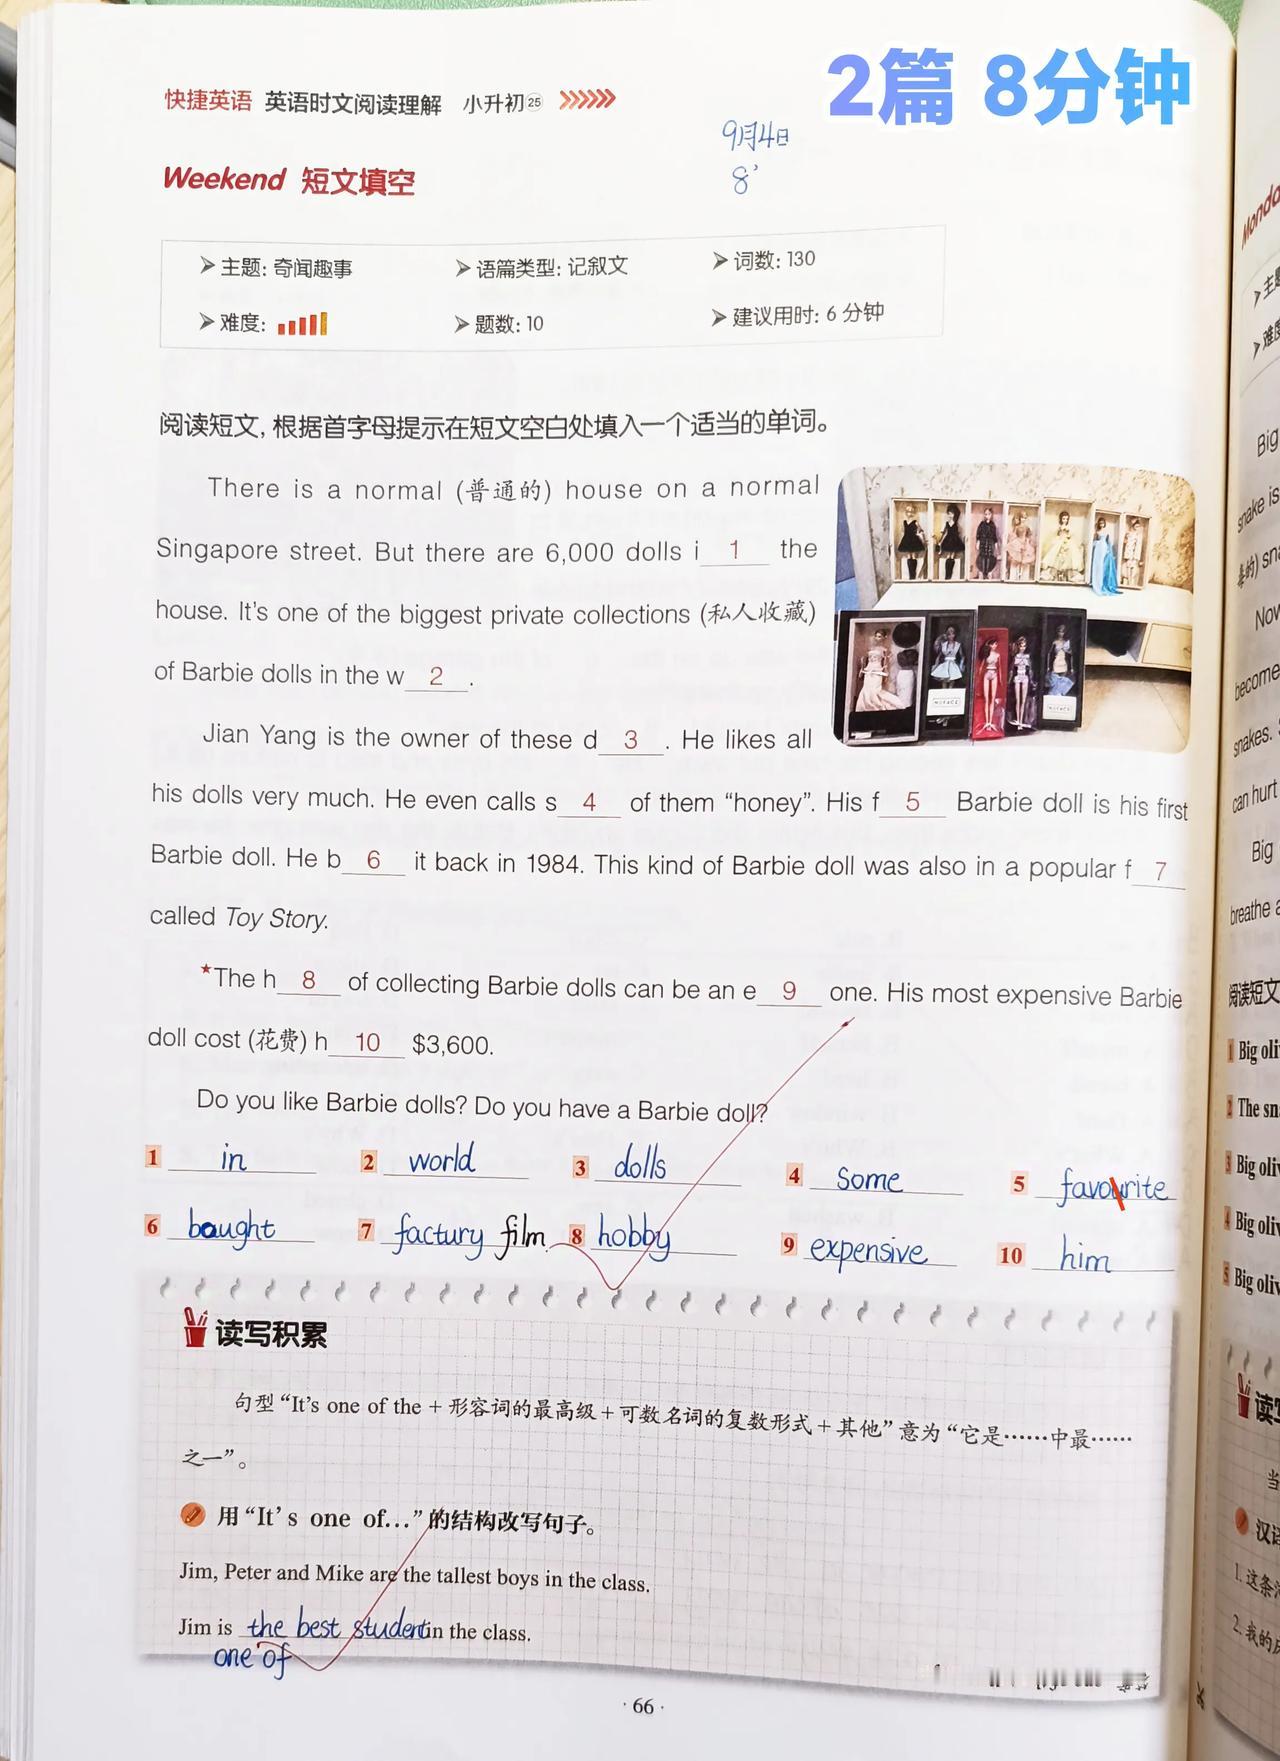 2篇 8分钟
快捷英语 英语时文阅读理解 小升初㉕
9月4日
8'
Weekend 短文填空
主题: 奇闻趣事 语篇类型: 记叙文 词数: 130
难度: 题数: 10 建议用时: 6 分钟
阅读短文, 根据首字母提示在短文空白处填入一个适当的单词。
There is a normal (普通的) house on a normal
Singapore street. But there are 6,000 dolls i 1 the
house. It's one of the biggest private collections (私人收藏)
of Barbie dolls in the w 2 .
Jian Yang is the owner of these d 3 . He likes all
his dolls very much. He even calls s 4 of them “honey”. His f 5 Barbie doll is his first
Barbie doll. He b 6 it back in 1984. This kind of Barbie doll was also in a popular f 7
called Toy Story.
★The h 8 of collecting Barbie dolls can be an e 9 one. His most expensive Barbie
doll cost (花费) h 10 $3,600.
Do you like Barbie dolls? Do you have a Barbie doll?
1 in 2 world 3 dolls 4 some 5 favourite
6 bought 7 factury film 8 hobby 9 expensive 10 him
读写积累
句型“It's one of the + 形容词的最高级 + 可数名词的复数形式 + 其他”意为“它是……中最……
之一”。
用“It's one of...”的结构改写句子。
Jim, Peter and Mike are the tallest boys in the class.
Jim is the best student in the class.
one of
· 66 ·
Monda
主题
难度
Big
snake is
毒的) sna
Now
become
snakes.
can hurt
Big
breathe a
阅读短文
1 Big oli
2 The sn
3 Big oliv
4 Big oliv
5 Big oliv
读写
当
汉译
1. 这条
2. 我的